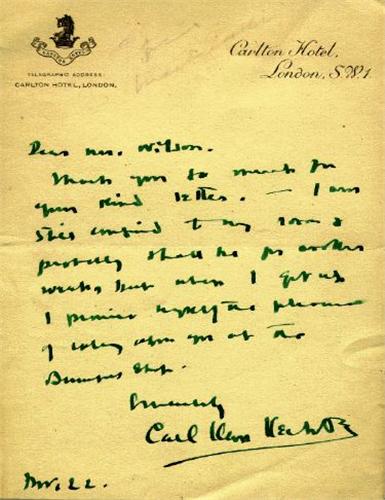 TELEGRAPHIC ADDRESS
CARLTON HOTEL, LONDON.
Carlton Hotel,
London, S.W.1.
Dear Mr. Wilson.
Thank you so much for
your kind letter. — I am
still confined to my room &
probably shall be for another
week, but when I get up
I promise myself the pleasure
of calling upon you at the
Bumpus Shop.
Sincerely
Carl Van Vechten
Nov. 22.